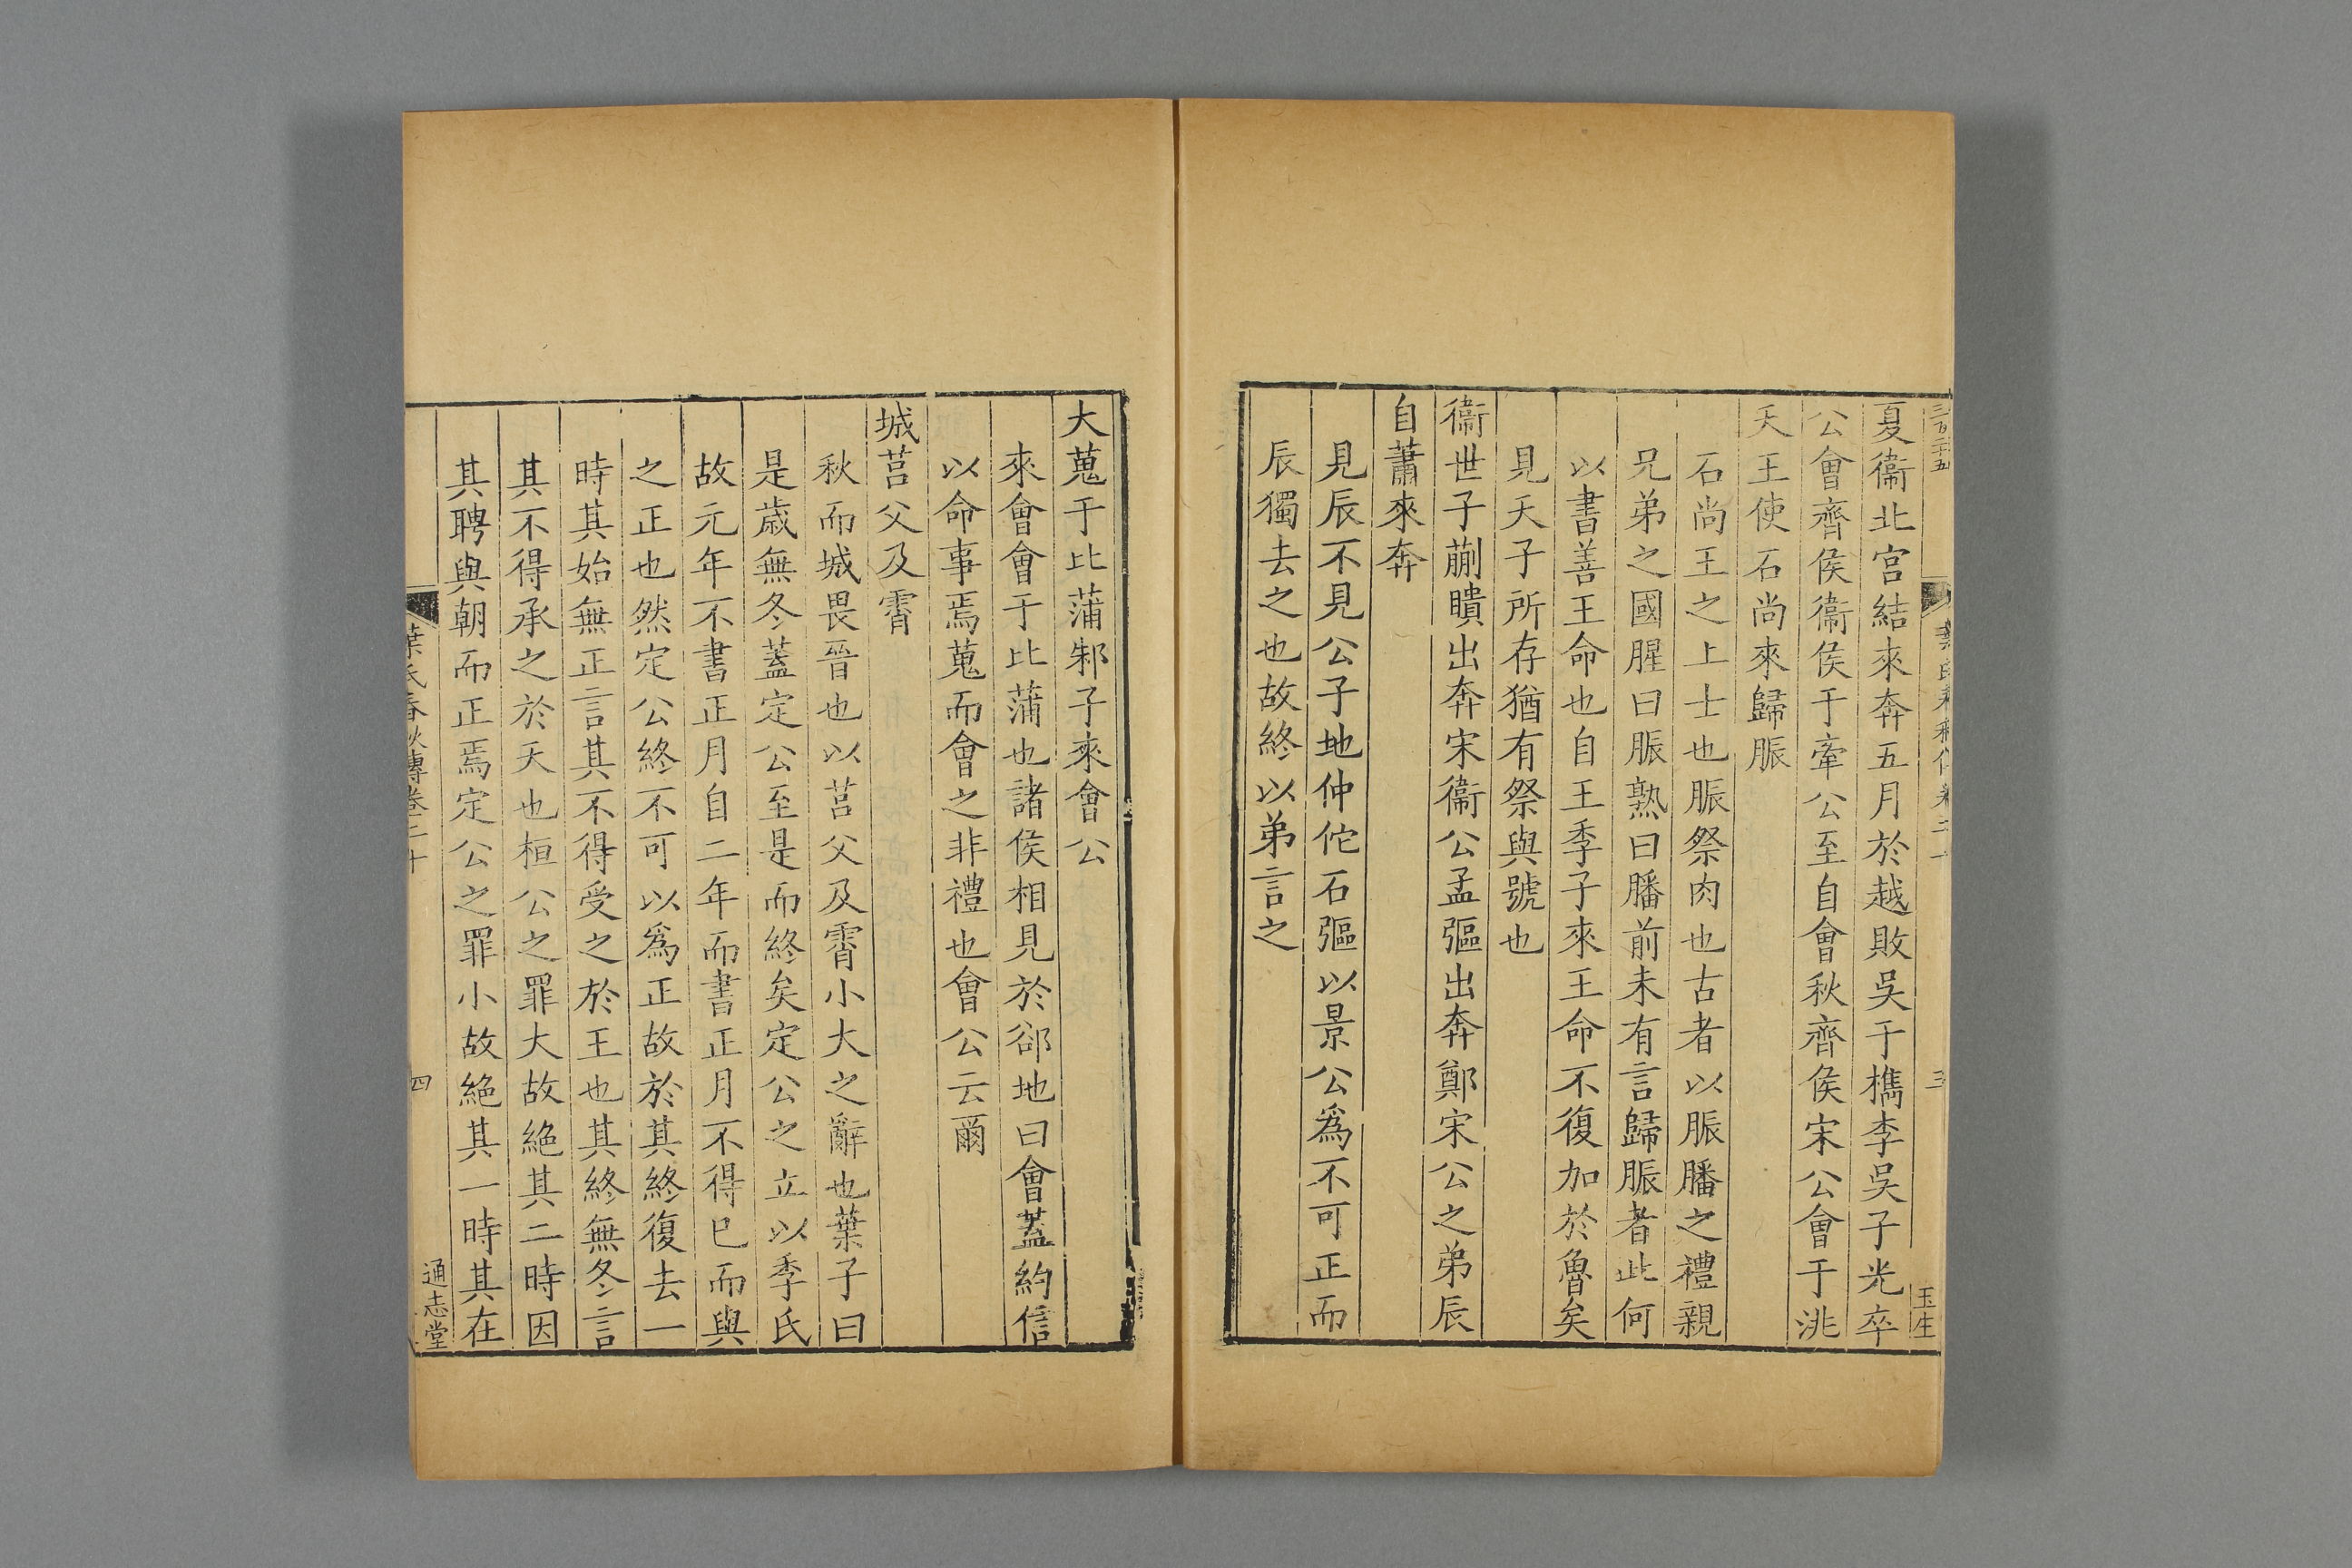 夏衞北宫結來奔五月於越敗吳于檇李吳子光卒
公會齊侯衞侯于牽公至自會秋齊侯宋公會于洮
天王使石尚來歸脤
石尚王之上士也脤祭肉也古者以脤膰之禮親
兄弟之國腥曰脤熟曰膰前未有言歸脤者此何
以書善王命也自王季子來王命不復加於魯矣
見天子所存猶有祭與號也
衞世子蒯聵出奔宋衞公孟彄出奔鄭宋公之弟辰
自蕭來奔
見辰不見公子地仲佗石彄以景公爲不可正而
辰獨去之也故終以弟言之
三百二十五
三
玉生
大蒐于比蒲邾子來會公
來會會于比蒲也諸侯相見於郤地曰會蓋約信
以命事焉蒐而會之非禮也會公云爾
城莒父及霄
秋而城畏晉也以莒父及霄小大之辭也葉子曰
是歳無冬蓋定公至是而終矣定公之立以季氏
故元年不書正月自二年而書正月不得已而與
之正也然定公終不可以爲正故於其終復去一
時其始無正言其不得受之於王也其終無冬言
其不得承之於天也桓公之罪大故絶其二時因
其聘與朝而正焉定公之罪小故絶其一時其在
葉氏春秋傳卷二十
四
通志堂